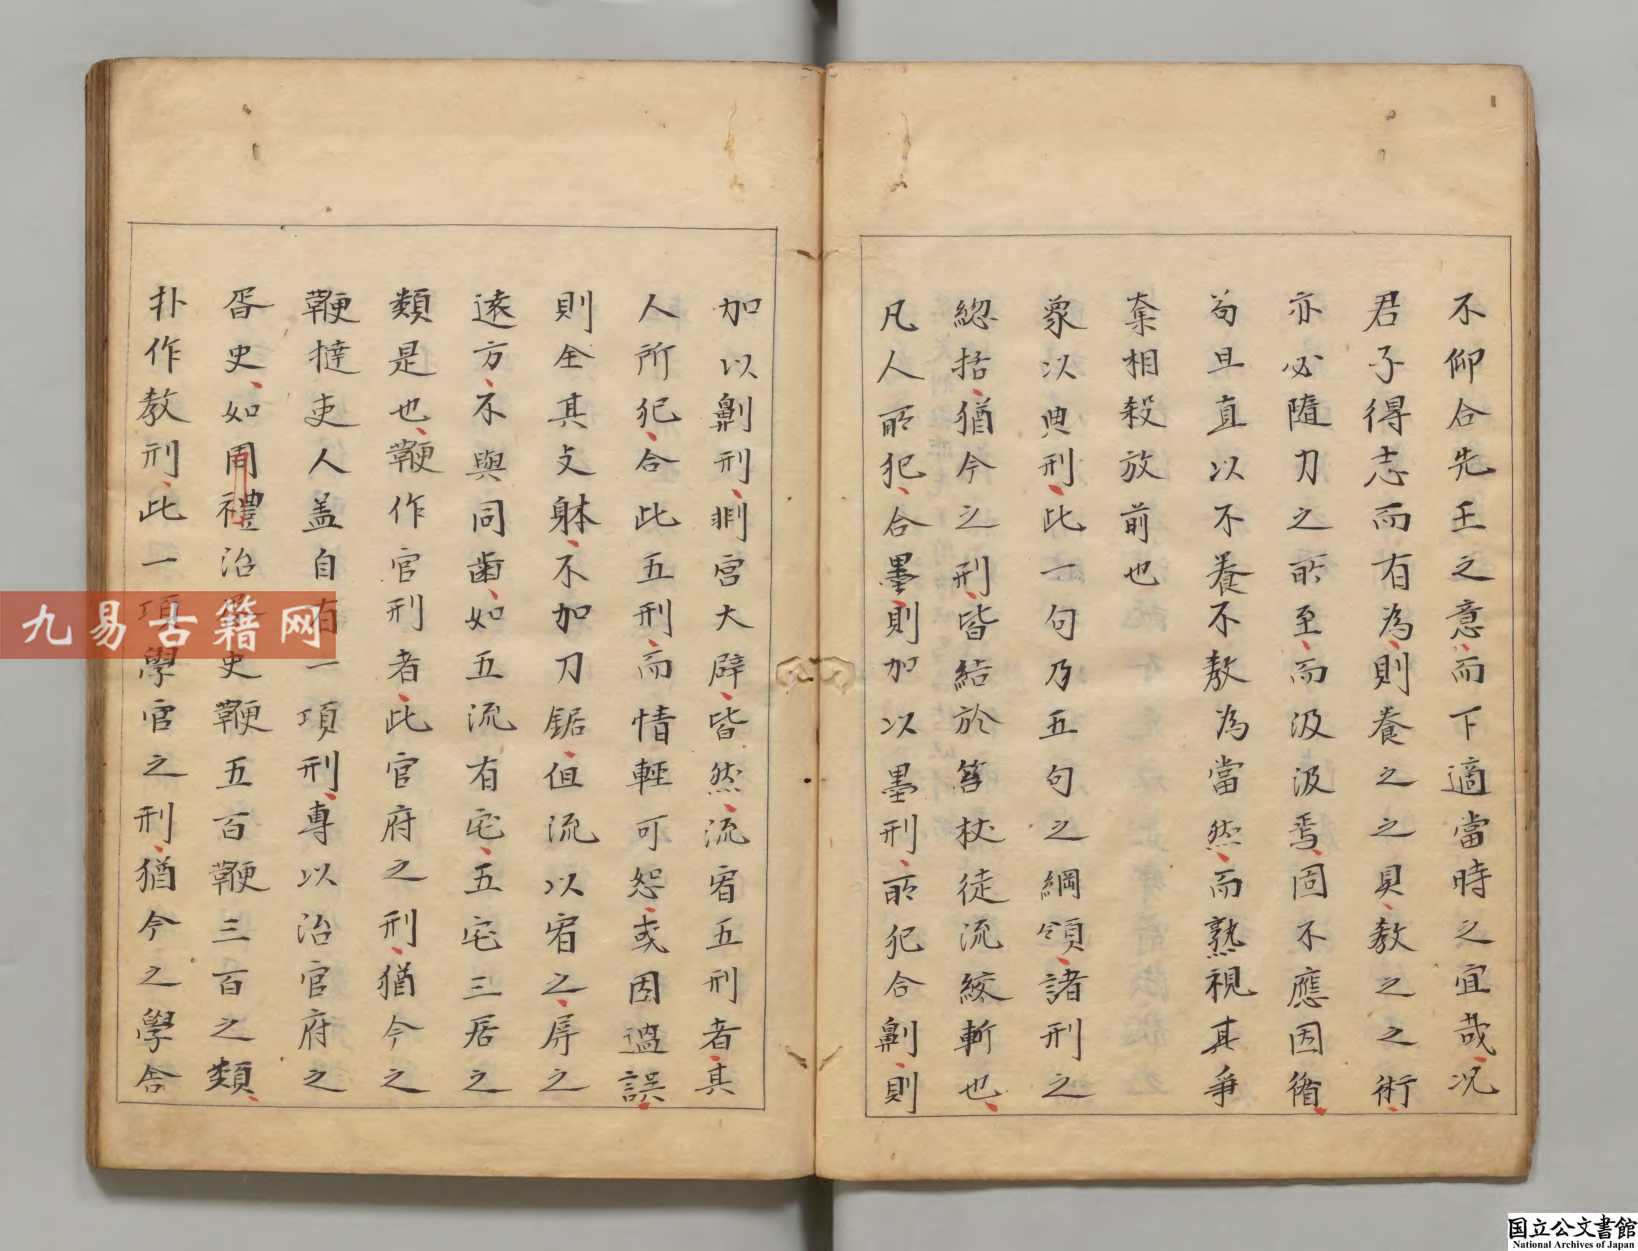 不仰合先王之意而下適當時之宜哉况
君子得志而有為則養之之具教之之術
亦必隨力之所至而汲汲焉固不應因循
苟且直以不養不教為當然而熟視其爭
奪相殺於前也
象以典刑此一句乃五句之綱領諸刑之
緫括猶今之刑皆結於笞杖徒流絞斬也
凡人所犯合墨則加以墨刑所犯合劓則
加以劓刑剕宫大辟皆然流宥五刑者其
人所犯合此五刑而情輕可恕或因過誤
則全其支躰不加刀鋸但流以宥之屏之
逺方不與同齒如五流有宅五宅三居之
類是也鞭作官刑者此官府之刑猶今之
鞭撻吏人盖自有一項刑専以治官府之
胥史如周禮治胥史鞭五百鞭三百之類
扑作教刑此一項學官之刑猶今之學舎
九易古籍网
国立公文書館
National Archives of Japan